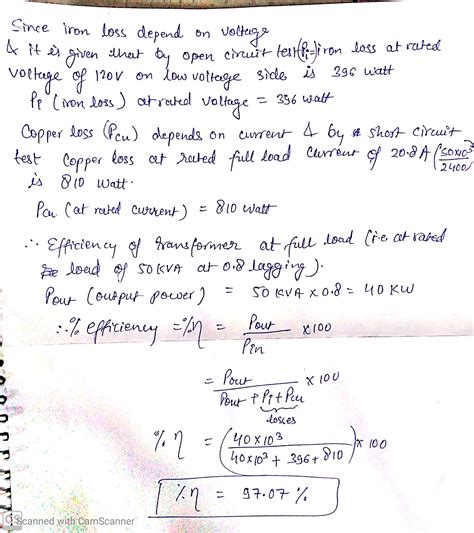 Since iron loss depend on voltage
& it is given that by open circuit test (Pi=) iron loss at rated
voltage of 120V on low voltage side is 396 watt
Pi (iron loss) at rated voltage = 396 watt
Copper loss (Pcu) depends on current & by short circuit
test copper loss at rated full load current of 20.8 A (50x10³/2400)
is 810 watt.
Pcu (at rated current) = 810 watt
∴ Efficiency of transformer at full load (i.e. at rated
load of 50 KVA at 0.8 lagging).
Pout (output power) = 50 KVA x 0.8 = 40 KW
∴ % efficiency = %η = Pout / Pin x 100
= Pout / Pout + Pi + Pcu x 100
losses
% η = (40 x 10³ / 40x10³ + 396 + 810) x 100
%η = 97.07 %
Scanned with CamScanner